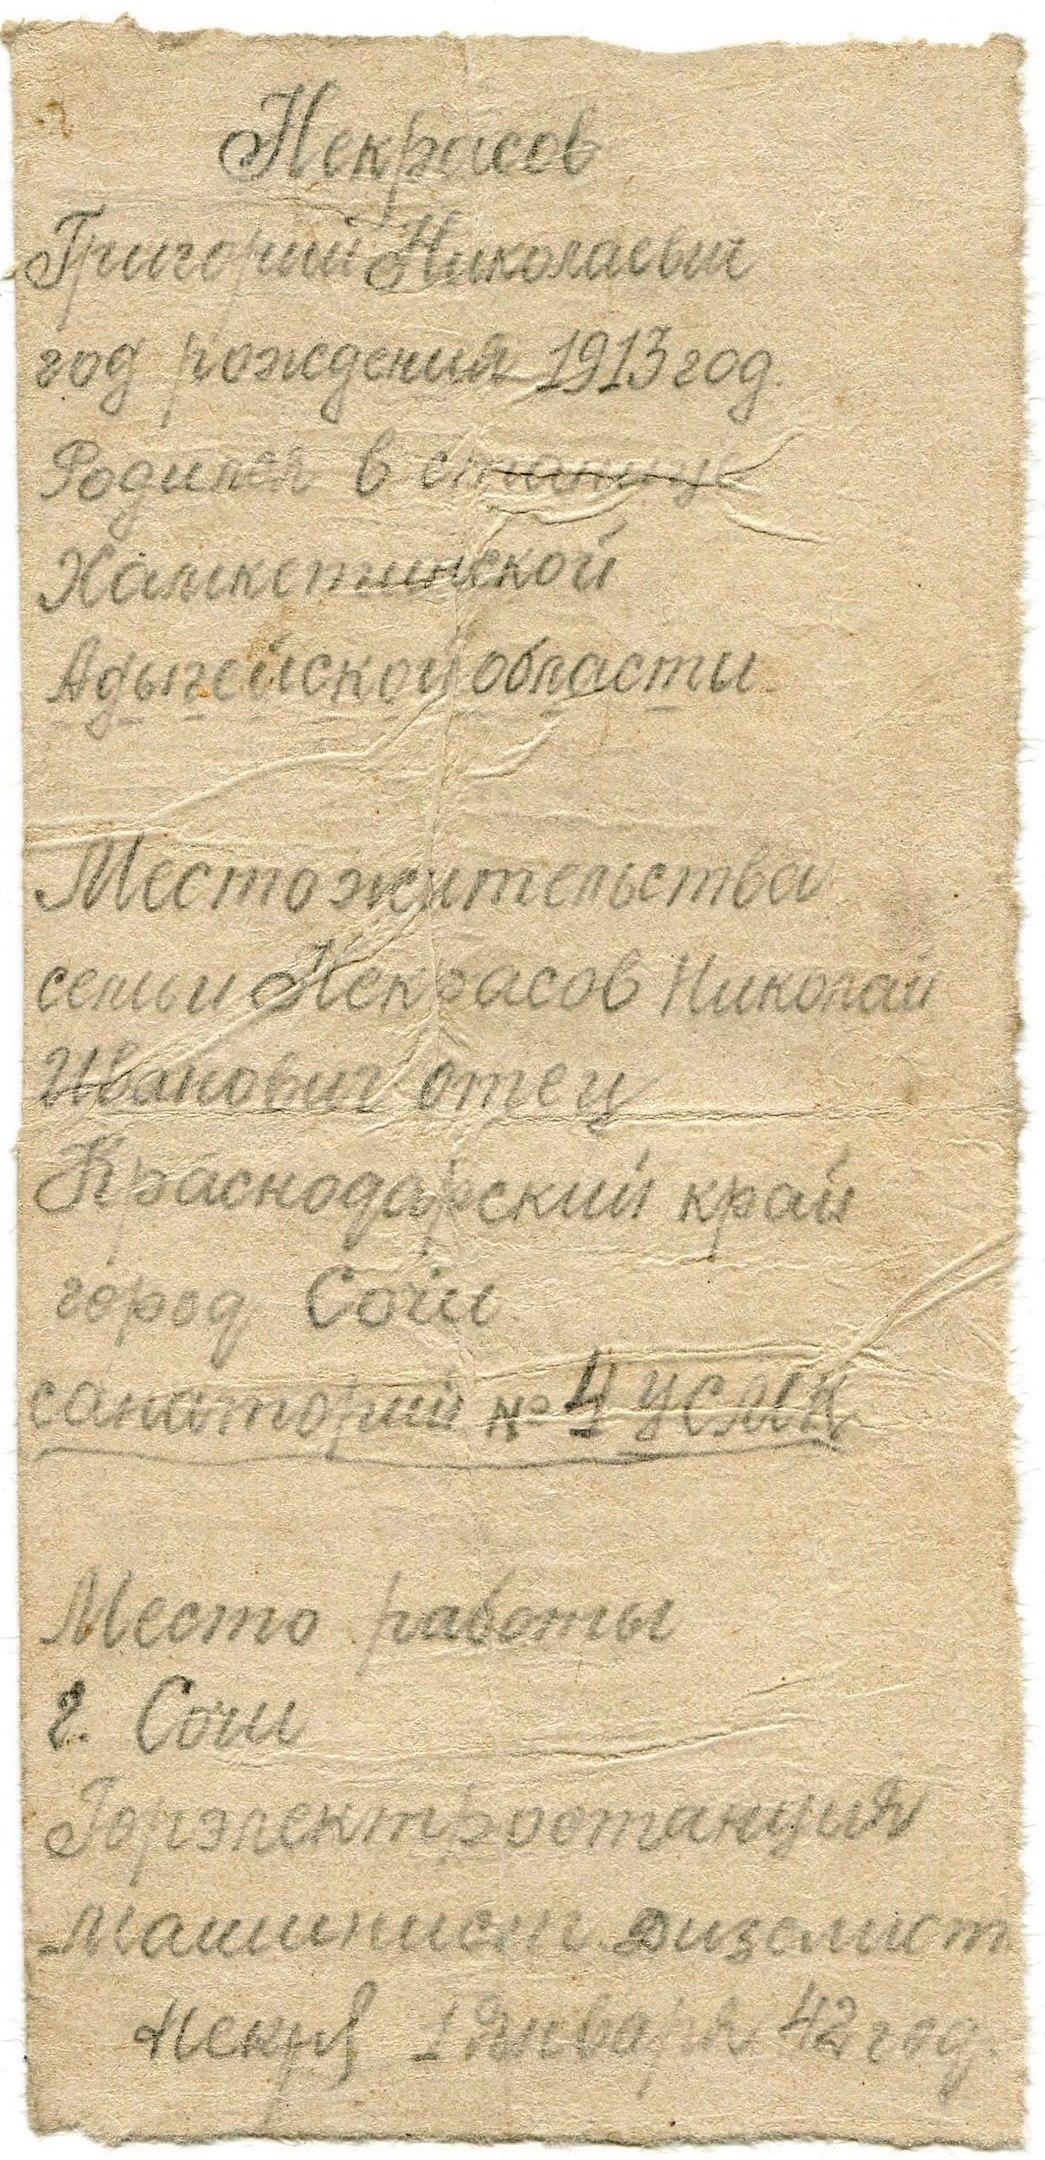 Некрасов
Григорий Николаевич
год рождения 1913 год.
Родился в станице
Хамкетинской
Адыгейской области.
Местожительства
семьи Некрасов Николай
Иванович отец
Краснодарский край
город Сочи
санаторий № 4
Место работы
г. Сочи
Горэлектростанция
Машинист. дизелист
1 Января 42 год.